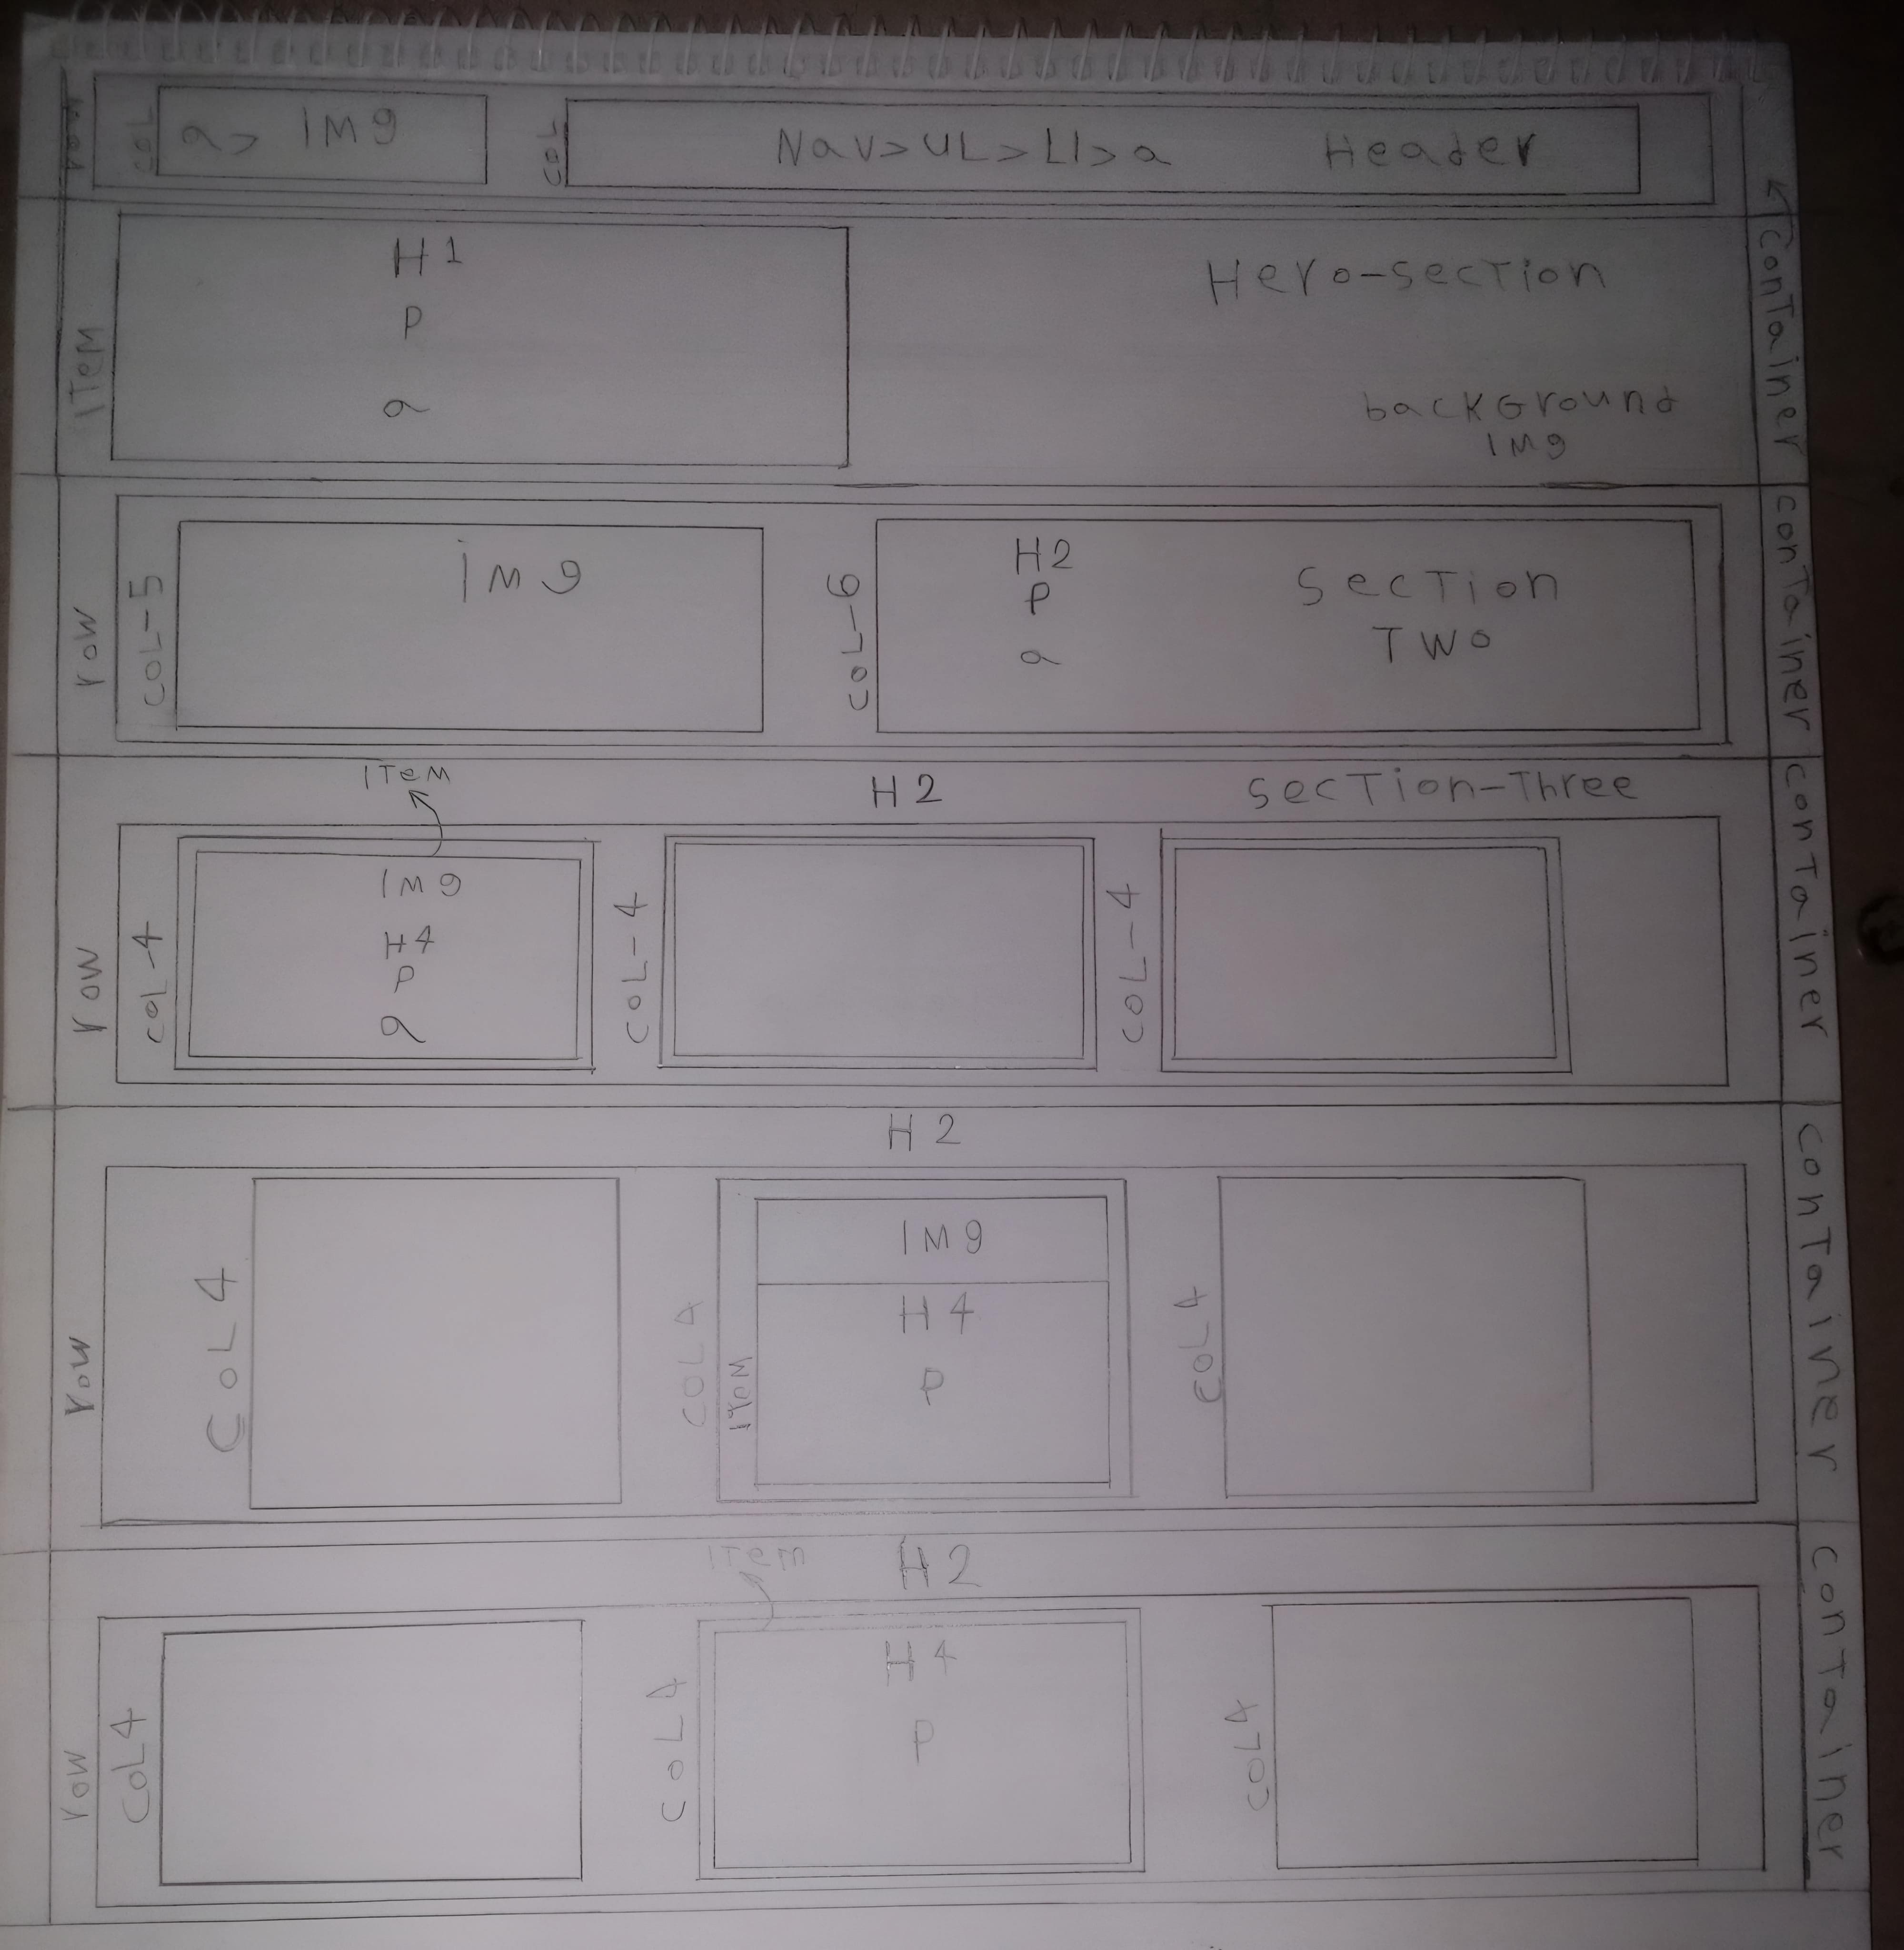 row
COL
a> IMg
COL
Nav>UL>LI>a
Header
Container
ITem
H1
P
a
Hero-secTion
backGround
IMg
row
COL-5
IMg
COL-6
H2
P
a
SecTion
TWO
conTainer
ITeM
H2
secTion-Three
row
COL-4
IMg
H4
P
a
COL-4
COL-4
conTainer
H2
row
COL4
COL4
ITeM
IMg
H4
P
COL4
conTainer
ITem
H2
row
COL4
COL4
H4
P
COL4
conTainer